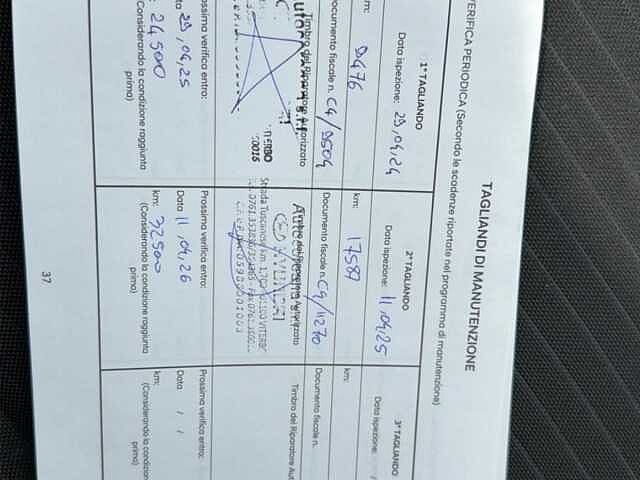 TAGLIANDI DI MANUTENZIONE
VERIFICA PERIODICA (Secondo le scadenze riportate nel programma di manutenzione)
1° TAGLIANDO
Data ispezione: 29,04,24
km: 9476
Documento fiscale n. C4/9504
Timbro del Riparatore Autorizzato
Prossima verifica entro:
29,04,25
24500
(Considerando la condizione raggiunta
prima)
2° TAGLIANDO
Data ispezione: 11,04,25
km: 17587
Documento fiscale n. C4/11270
Timbro del Riparatore Autorizzato
Strada Tuscanese km. 1,700
VITERBO
Prossima verifica entro:
Data 11,04,26
km: 32500
(Considerando la condizione raggiunta
prima)
3° TAGLIANDO
Data ispezione: /
km:
Documento fiscale n.
Timbro del Riparatore Au
Prossima verifica entro:
Data / /
km:
(Considerando la condizion
prima)
37